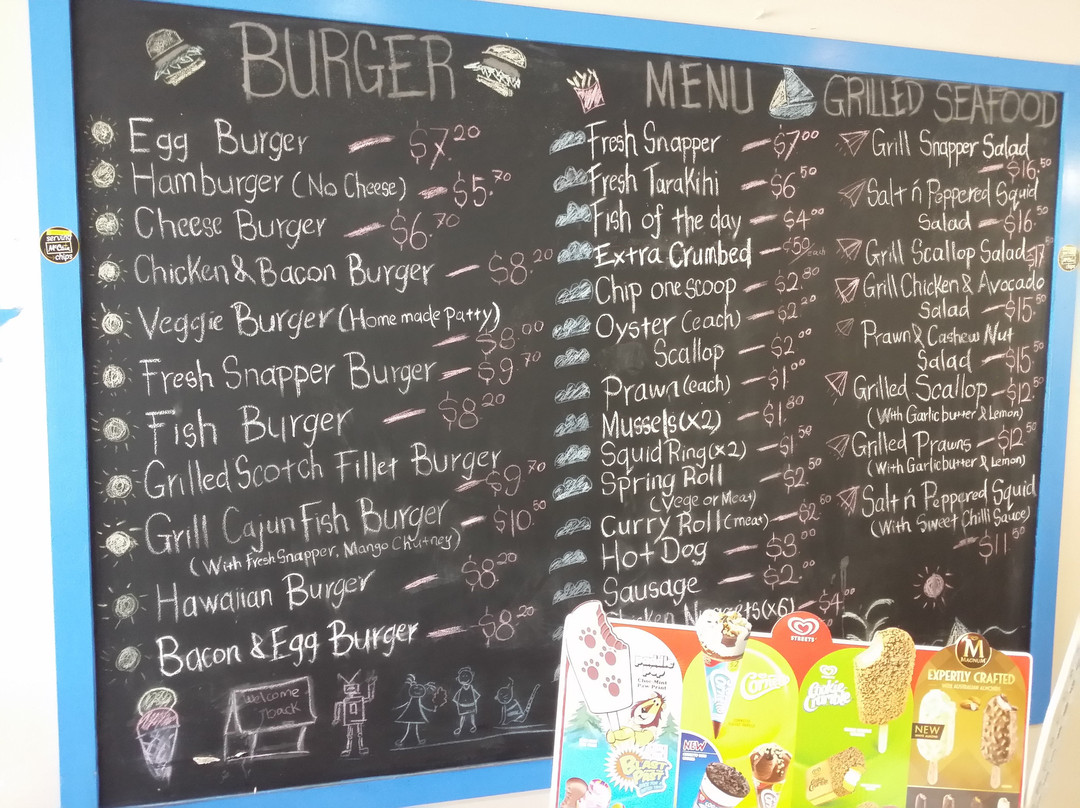 BURGER
Egg Burger — $7.20
Hamburger (No Cheese) — $5.70
Cheese Burger — $6.70
Chicken & Bacon Burger — $8.20
Veggie Burger (Home made Patty)
— $8.00
Fresh Snapper Burger — $9.70
Fish Burger — $8.20
Grilled Scotch Fillet Burger
— $9.70
Grill Cajun Fish Burger — $10.50
(With Fresh Snapper, Mango Chutney)
Hawaiian Burger — $8.20
Bacon & Egg Burger — $8.20
Welcome
Back
serving
McCain
chips
MENU
Fresh Snapper — $7.00
Fresh Tarakihi — $6.50
Fish of the day — $4.00
Extra Crumbed — $.50 each
Chip one scoop — $2.80
Oyster (each) — $2.20
Scallop — $2.00
Prawn (each) — $1.00
Mussels (x2) — $1.80
Squid Ring (x2) — $1.50
Spring Roll — $2.50
(Vege or Meat)
Curry Roll (meat) — $2.60
Hot Dog — $3.00
Sausage — $2.00
Chicken Nuggets (x6) — $4.00
GRILLED SEAFOOD
Grill Snapper Salad
— $16.50
Salt n Peppered Squid
Salad — $16.50
Grill Scallop Salad — $17
Grill Chicken & Avocado
Salad — $15.50
Prawn & Cashew Nut
Salad — $15.50
Grilled Scallop — $12.50
(With Garlic butter & Lemon)
Grilled Prawns — $12.50
(With Garlic butter & Lemon)
Salt n Peppered Squid
(With Sweet Chilli Sauce)
— $11.50
Choc-Mint
Paw Print
BLAST
NEW
STREETS
Cookie
Crumble
M
MAGNUM
EXPERTLY CRAFTED
NEW